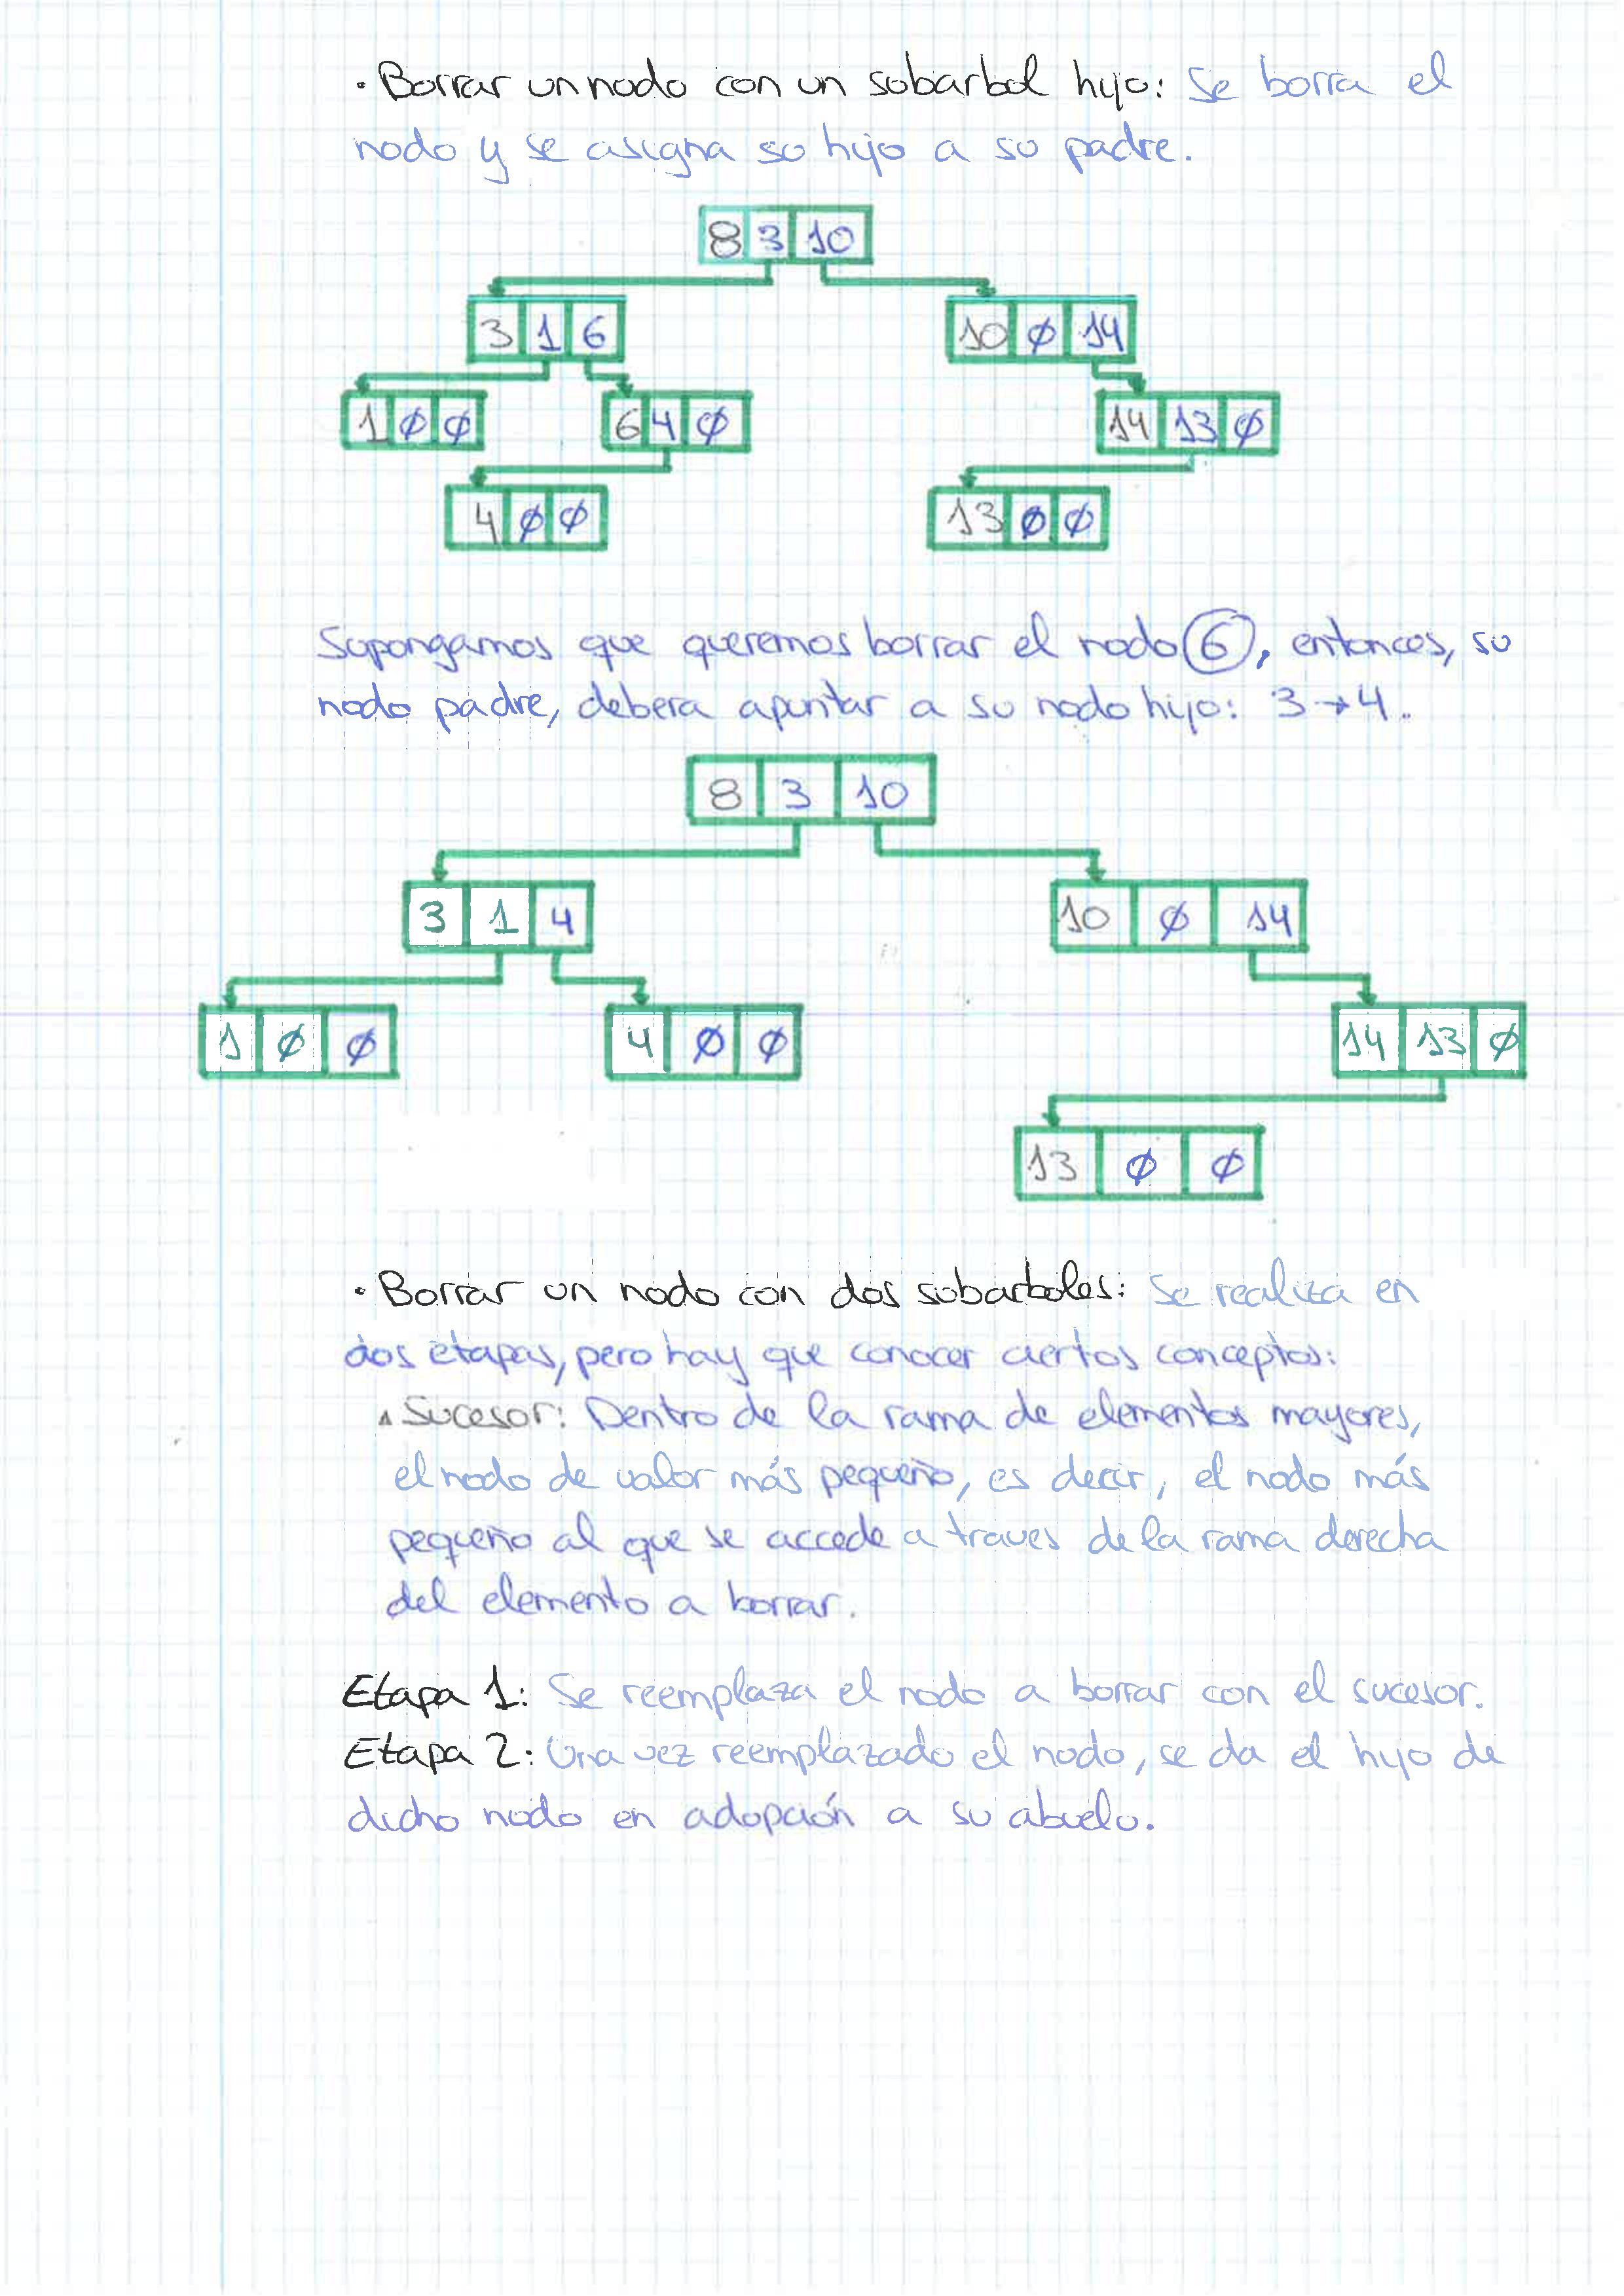 · Borrar un nodo con un subarbol hijo: Se borra el
nodo y se asigna su hijo a su padre.
8 3 10
3 1 6 10 Ø 14
1 Ø Ø 6 4 Ø 14 13 Ø
4 Ø Ø 13 Ø Ø
Supongamos que queremos borrar el nodo 6, entonces, su
nodo padre, debera apuntar a su nodo hijo: 3→4.
8 3 10
3 1 4 10 Ø 14
1 Ø Ø 4 Ø Ø 14 13 Ø
13 Ø Ø
· Borrar un nodo con dos subarboles: Se realiza en
dos etapas, pero hay que conocer ciertos conceptos:
▵ Sucesor: Dentro de la rama de elementos mayores,
el nodo de valor más pequeño, es decir, el nodo más
pequeño al que se accede a traves de la rama derecha
del elemento a borrar.
Etapa 1: Se reemplaza el nodo a borrar con el sucesor.
Etapa 2: Una vez reemplazado el nodo, se da el hijo de
dicho nodo en adopción a su abuelo.